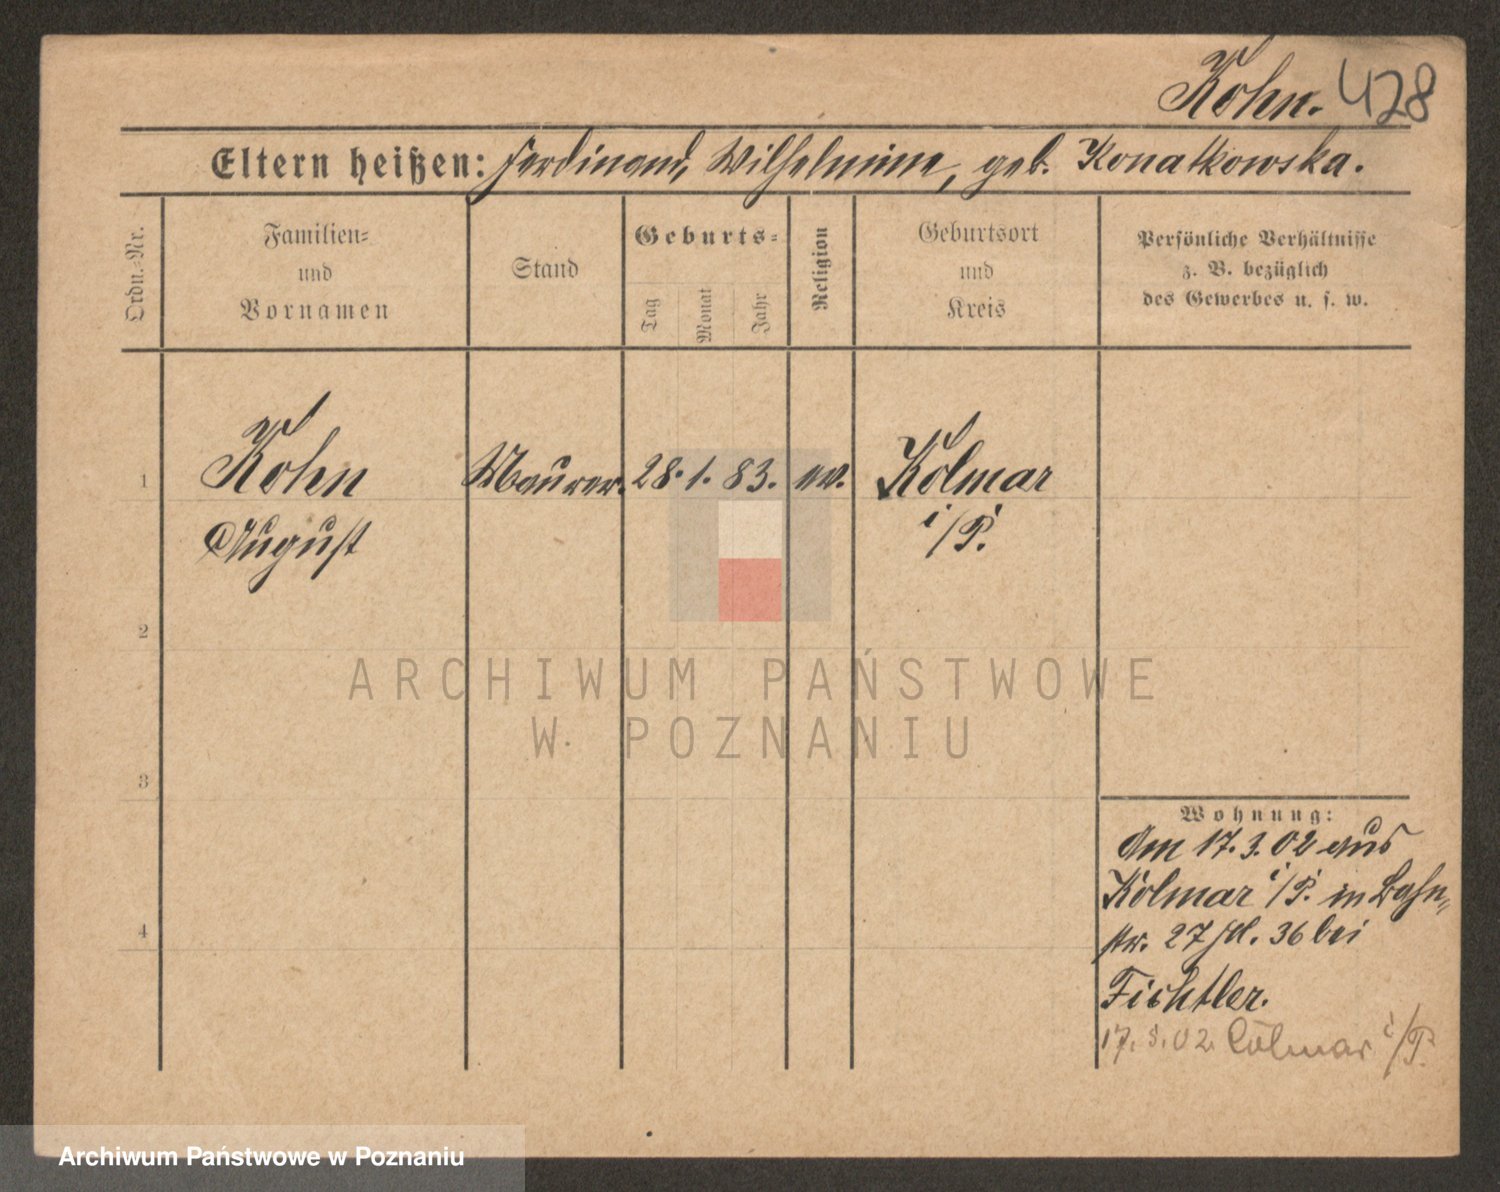 Kohn. 428
Eltern heißen: Ferdinand, Wilhelmine, geb. Konatkowska.
Ordn.-Nr.
Familien-
und
Vornamen
Stand
Geburts-
Tag
Monat
Jahr
Religion
Geburtsort
und
Kreis
Persönliche Verhältnisse
z. B. bezüglich
des Gewerbes u. s. w.
1
Kohn
August
Maurer.
28. 1. 83.
ev.
Kolmar
i/P.
2
3
4
ARCHIWUM PAŃSTWOWE
W POZNANIU
Wohnung:
Am 17. 3. 02 aus
Kolmar i/P. in Bahn-
str. 27 36 bei
Fichtler.
17. 8. 02. Colmar i/P.
Archiwum Państwowe w Poznaniu